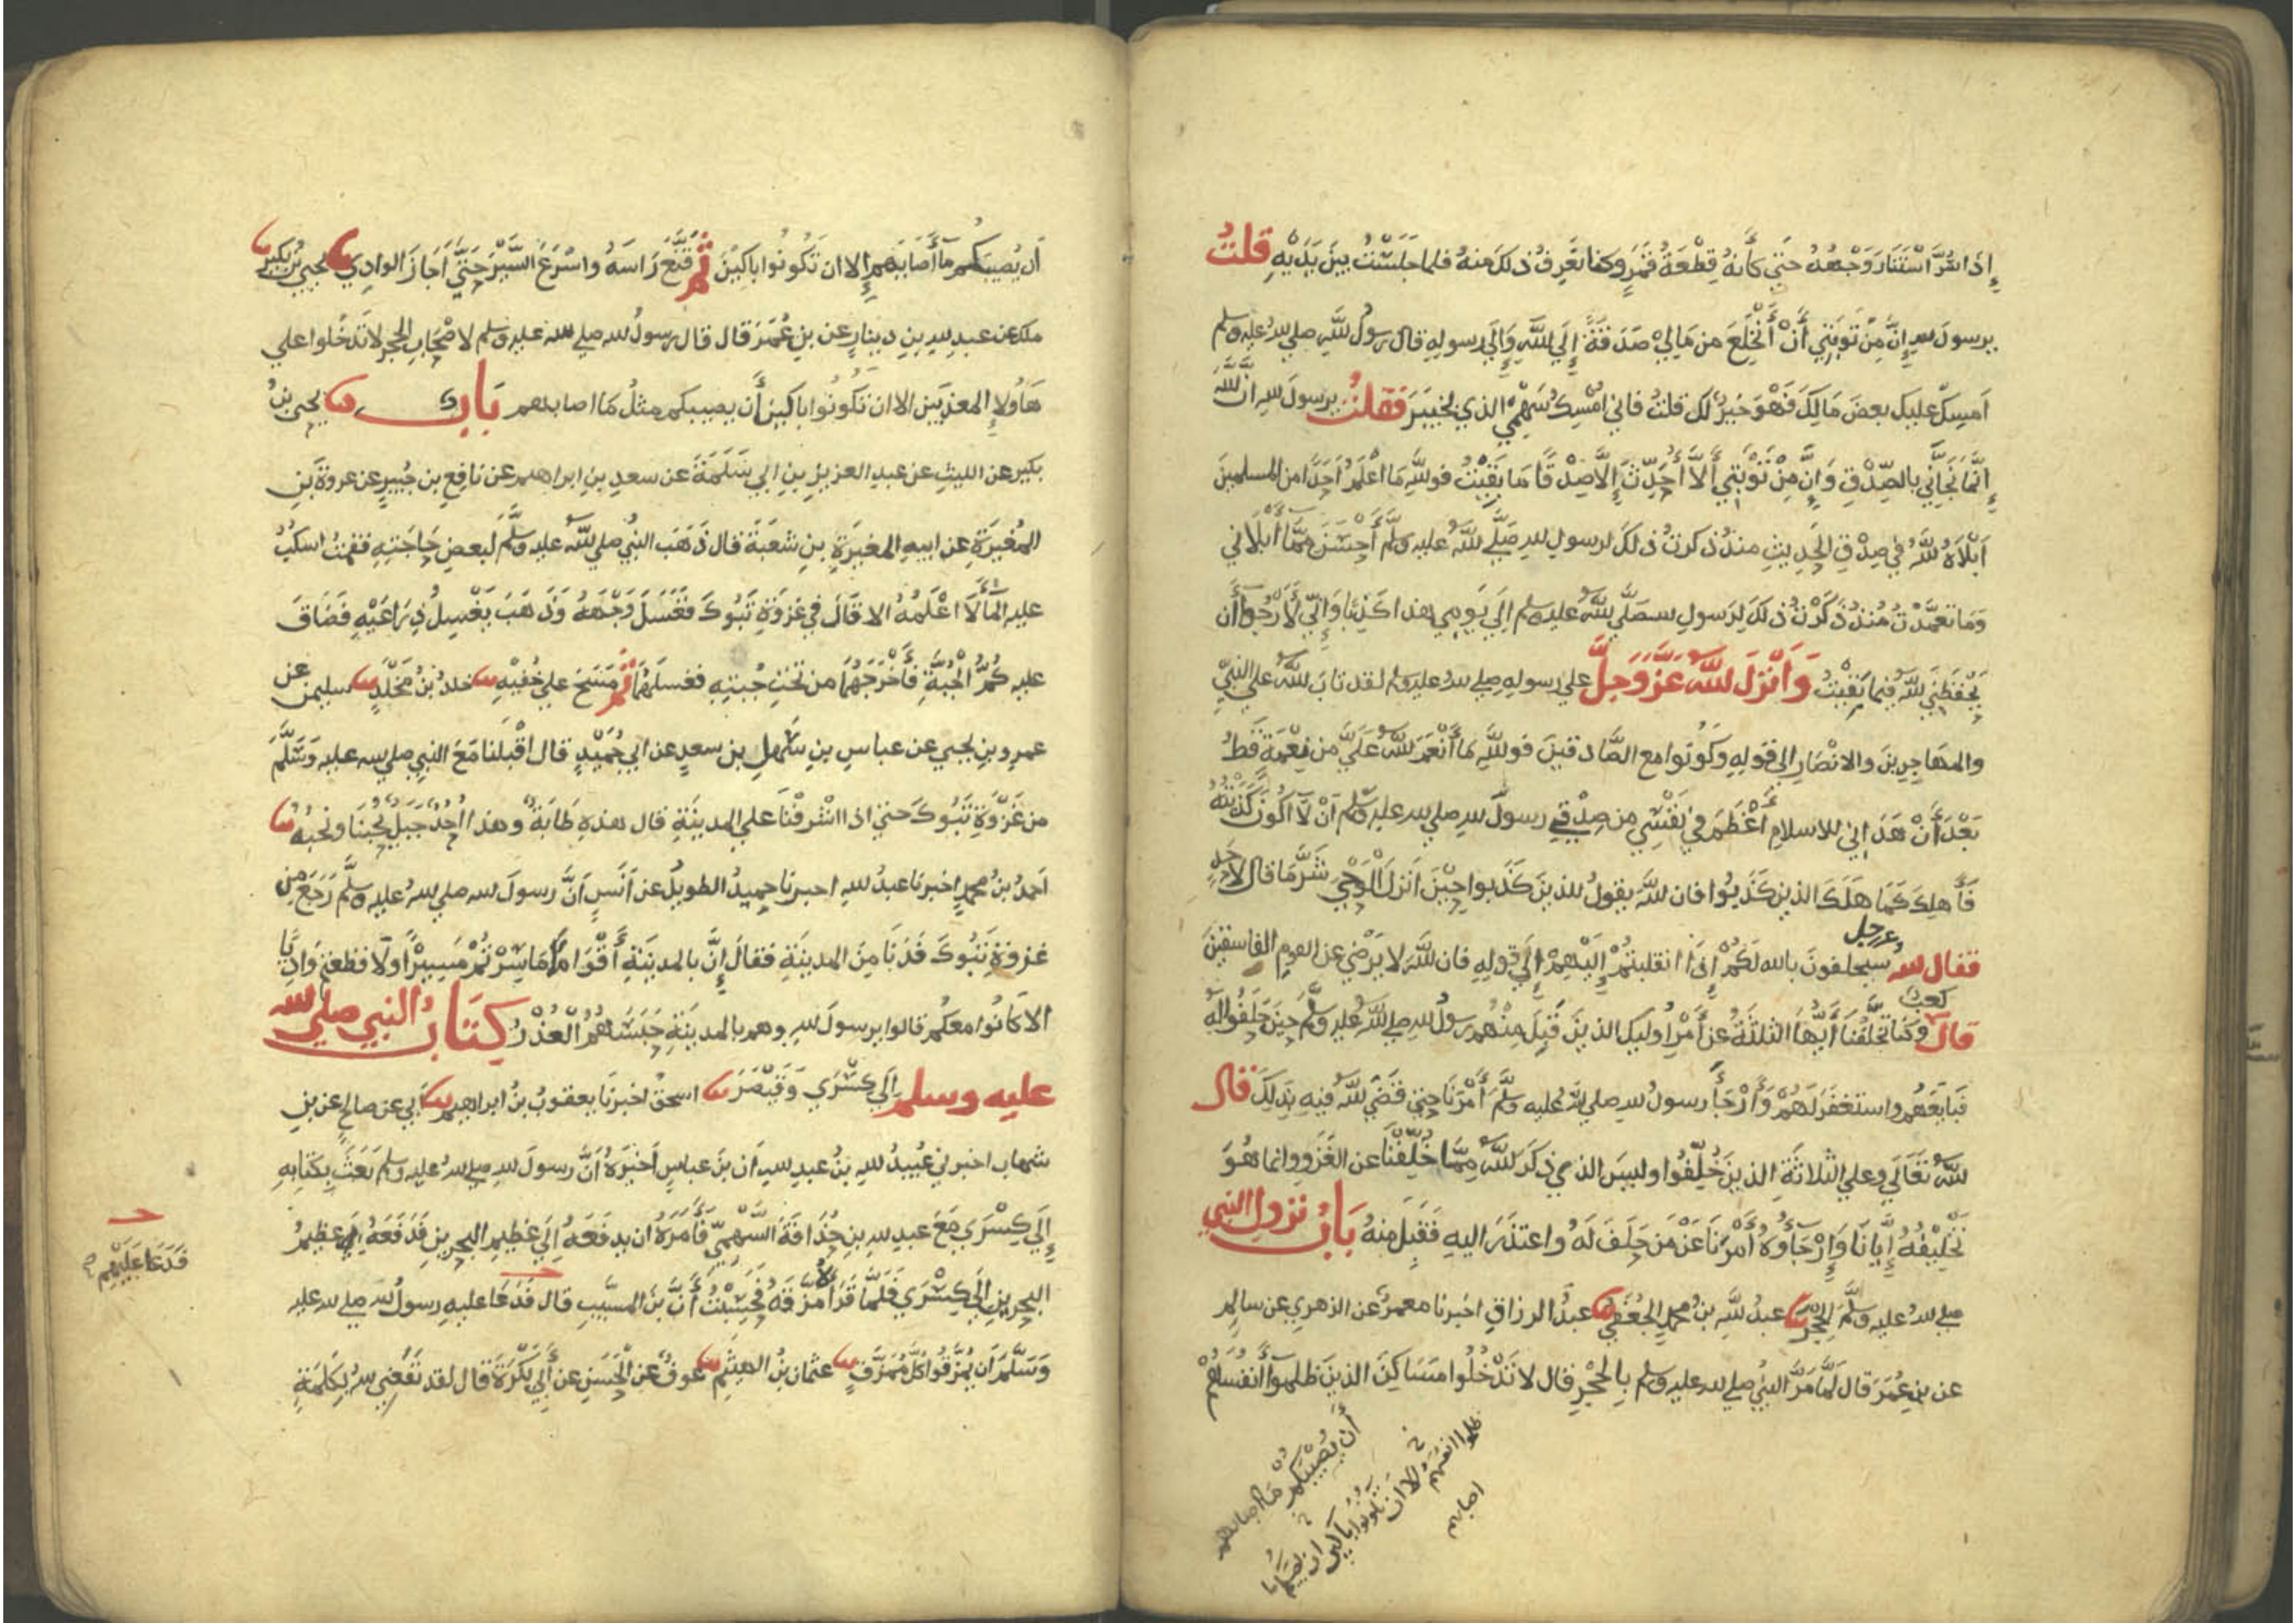 إِذَا سُرَّ اسْتَنَارَ وَجْهُهُ حَتَّى كَأَنَّهُ قِطْعَةُ قَمَرٍ وَكنا نَعْرِفُ ذلكَ منهُ فلما جَلَسْتُ بينَ يَدَيْهِ قلتُ
يرسولَ الله إِنَّ مِنْ تَوْبَتِي أَنْ أَنْخَلِعَ من مَالِي صَدَقَةً إِلَى اللَّهِ وَإِلَى رسولِهِ قال رسولُ اللَّهِ صلى الله عليه وسلم
اَمسِكْ عليكَ بعضَ مَالِكَ فَهْوَ خيرٌ لك قلتُ فاني امْسِكُ سَهْمِي الذي بخيبَرَ فقلتُ يرسولَ اللهِ انَّ اللَّهَ
إِنَّمَا نَجَّانِي بالصِّدْقِ وَإِنَّ مِنْ تَوْبَتِي أَلَّا أُحَدِّثَ إِلَّا صِدْقًا مَا بَقِيتُ فواللَّهِ مَا أَعْلَمُ أَحَدًا من المسلمينَ
أَبْلَاهُ اللَّهُ فِي صِدْقِ الحَدِيثِ منذُ ذكرتُ ذلكَ لرسولِ اللهِ صَلَّى اللَّهُ عليه وسلَّم أَحْسَنَ مِمَّا أَبْلَانِي
وَمَا تَعَمَّدْتُ مُنْذُ ذَكَرْتُ ذلكَ لِرَسولِ الله صَلَّى اللَّهُ عليه وسلم إِلَى يَومِي هذا كَذِبًا وَإِنِّي لَأَرْجُوا أن
يَحْفَظَنِيَ اللَّهُ فِيمَا بَقِيْتُ وَأَنْزَلَ اللَّهُ عَزَّ وَجَلَّ على رسولِهِ صلى الله عليه وسلم لقد تابَ اللَّهُ على النَّبِيِّ
والمهاجرينَ والانْصَارِ إلى قولِهِ وَكُونُوا مع الصَّادقينَ فواللَّهِ مَا أَنْعَمَ اللَّهُ عَلَيَّ من نِعْمَةٍ قَطُّ
بَعْدَ أَنْ هَدَانِي للاسلامِ أَعْظَمَ فِي نَفْسِي مِن صِدْقِي رسولَ اللهِ صلى الله عليه وسلم أَنْ لَّا اكُونَ كَذَبْتُهُ
فَأَهلِكَ كَمَا هَلَكَ الذينَ كَذَبُوا فان اللَّهَ يقولُ للذينَ كَذَبوا حِيْنَ أَنزلَ الْوَحْيَ شَرَّ مَا قال لأَحَدٍ
فقال الله عز وجل سيحلفونَ بالله لَكُمْ إِذَا انقلبتُمْ إِلَيْهِمْ إِلَى قولِهِ فان اللَّهَ لا يَرْضَى عن القومِ الفاسقينَ
قال كعبٌ وَكنا تخلَّفْنَا أَيُّهَا الثلثةُ عن أَمْرِ أُوليكَ الذينَ قَبِلَ مِنْهُمْ رسولُ اللهِ صلى اللَّهُ عليه وسلَّم حِينَ حَلَفُوا لَهُ
فَبَايَعَهُمْ واستغفَرَ لَهُمْ وَأَرْجَأَ رسولُ اللهِ صلى اللَّهُ عليه وسلَّم أَمْرَنَا حتى قَضَى اللَّهُ فيهِ بِذَلِكَ قال
اللَّهُ تَعَالَى وعلى الثلاثَةِ الذينَ خُلِّفُوا وليسَ الذي ذكرَ اللَّهُ مِمَّا خُلِّفْنَا عن الغَزْوِ وانما هُوَ
تَخْلِيفُهُ إِيَّانَا وَإِرْجَاؤُهُ أَمْرَنَا عَنْ مَن حَلَفَ لَهُ واعتذَرَ اليهِ فَقَبِلَ منهُ بَابُ نزولِ النبي
صلى اللهُ عليه وسلَّمَ الحِجْرَ عبدُ اللَّهِ بنُ محمدٍ الجُعْفِيُّ عبدُ الرزاقِ اخبرنا معمرٌ عن الزهري عن سالمٍ
عن بنِ عُمَرَ قال لَمَّا مَرَّ النبيُّ صلى الله عليه وسلم بِالحِجْرِ قال لا تَدْخُلُوا مَسَاكِنَ الذينَ ظلموا أَنفُسَهُمْ
أَن يُصِيبَكُمْ مَا اصابهم
ظلموا انفسهم
الا ان تكونوا باكين ان يصيبكم ما
اصابهم
أَن يُصِيبَكُم مَا أَصَابَهُم إِلا ان تَكُونُوا باكِينَ ثُمَّ قَنَّعَ رَاسَهُ واسْرَعَ السَّيْرَ حَتَّى أَجَازَ الوادِيَ يحيى بنُ بكيرٍ
ملك عن عبدِ اللهِ بنِ دينارٍ عن بنِ عُمَرَ قال قال رسولُ الله صلى الله عليه وسلم لاصْحَابِ الحِجرِ لا تَدْخُلوا على
هَاؤُلاءِ المعذبين الا ان تكُونُوا باكين أَن يصيبكم مثلُ مَا اصابهم بَابٌ يحيى بنُ
بكيرٍ عن الليثِ عن عبدِ العزيزِ بنِ ابي سَلَمَةَ عن سعدِ بنِ ابراهيم عن نافِعِ بنِ جُبيرٍ عن عروةَ بنِ
المُغِيرَةِ عن ابيهِ المغيرَةِ بنِ شعبَةَ قال ذَهَبَ النبيُّ صلى اللَّهُ عليه وسلَّمَ لبعضِ حَاجَتِهِ فقمتُ اسكبُ
عليه المَاءَ لَا اعْلَمُهُ الا قَالَ في غزوَةِ تَبُوكَ فَغَسَلَ وَجْهَهُ وَذَهَبَ يَغْسِلُ ذِرَاعَيْهِ فَضَاقَ
عليه كُمُّ الْجُبَّةِ فَأَخْرَجَهُمَا من تحتِ جُبتِهِ فغسلهُمَا ثُمَّ مَسَحَ على خُفيْهِ خلدُ بنُ مَخْلَدٍ سليمن عن
عمرِو بنِ يحيى عن عباسِ بنِ سَهلِ بن سعدٍ عن ابي حُمَيْدٍ قال اقْبَلنا مَعَ النبيِ صلى الله عليه وَسَلَّمَ
من غَزْوَةِ تَبُوكَ حتى اذا اشرفْنَا على المدينَةِ قال هذهِ طَابَةُ وهذا أُحُدٌ جَبَلٌ يُحِبُّنَا ونحبُّهُ
أحمدُ بنُ محمدٍ اخبرنا عبدُ اللهِ اخبرنا حميدٌ الطويلُ عن أَنَسٍ أَنَّ رسولَ الله صلى اللهُ عليه وسلَّم رَجَعَ من
غزوةِ تَبُوكَ فَدَنَا مِنَ المدينَةِ فقالَ إِنَّ بالمدينَةِ أَقْوَامًا مَا سِرْتُمْ مَسِيرًا وَلَا قطعتم وَادِيًا
الا كَانُوا معكُم قالوا يرسولَ اللهِ وهم بالمدينَةِ حَبَسَهُمُ الْعُذْرُ كِتَابُ النبي صلى الله
عليه وسلم إِلَى كِسْرَى وَقَيْصَرَ اسحقُ اخبرنَا يعقوبُ بنُ ابراهيمَ أَبي عن صالحٍ عن بنِ
شهاب اخبرني عُبيدُ اللهِ بنُ عبدِ اللهِ ان بنَ عباسٍ أَخْبَرَهُ أَنَّ رسولَ اللهِ صلى اللهُ عليه وسلم بَعَثَ بِكتابِهِ
إِلَى كِسْرَى مَعَ عبدِ اللهِ بنِ حُذَافَةَ السَّهْمِيِّ فَأَمَرَهُ ان يدفَعَهُ إِلَى عَظِيمِ البحرينِ فَدَفَعَهُ عظيمُ
البحرينِ إِلَى كِسْرَى فَلَمَّا قَرَأَهُ مَزَّقَهُ فَحَسِبْتُ أَنَّ بنَ المسيَّبِ قال فَدَعَا عليهِ رسولُ الله صلى الله عليه
وَسَلَّمَ أَن يُمَزَّقُوا كُلَّ مُمَزَّقٍ عثمانُ بنُ الهيثمِ عوفٌ عن الْحَسَنِ عن أَبِي بَكْرَةَ قال لقد نَفَعَنِي اللهُ بِكَلِمَةٍ
فَدَعَا عَلَيْهِم صح